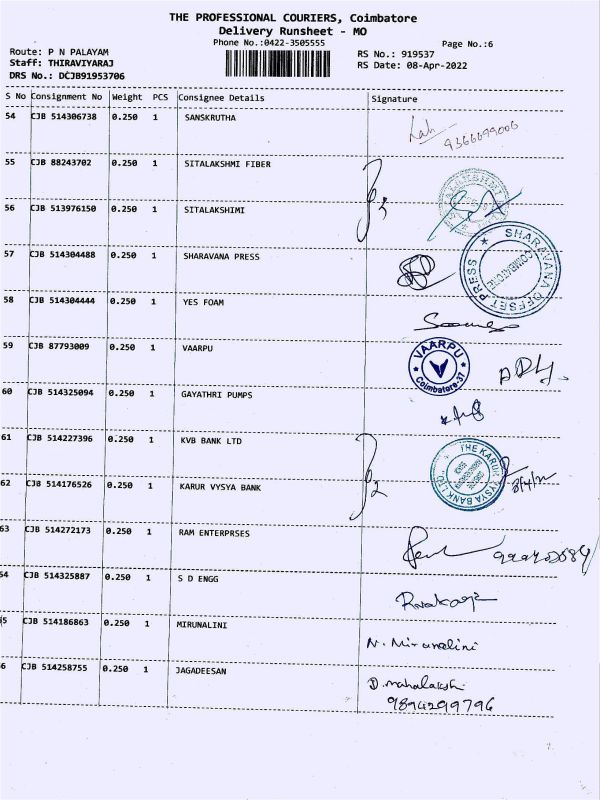 THE PROFESSIONAL COURIERS, Coimbatore
Delivery Runsheet - MO
Phone No.:0422-3505555
Page No.:6
Route: P N PALAYAM
Staff: THIRAVIYARAJ
DRS No.: DCJB91953706
RS No.: 919537
RS Date: 08-Apr-2022
S No Consignment No Weight PCS Consignee Details Signature
54 CJB 514306738 0.250 1 SANSKRUTHA
9366699006
55 CJB 88243702 0.250 1 SITALAKSHMI FIBER
56 CJB 513976150 0.250 1 SITALAKSHIMI
57 CJB 514304488 0.250 1 SHARAVANA PRESS
SHARAVANA OFFSET PRESS
COIMBATORE
58 CJB 514304444 0.250 1 YES FOAM
59 CJB 87793009 0.250 1 VAARPU
VAARPU
Coimbatore-37
60 CJB 514325094 0.250 1 GAYATHRI PUMPS
61 CJB 514227396 0.250 1 KVB BANK LTD
THE KARUR VYSYA BANK LTD
62 CJB 514176526 0.250 1 KARUR VYSYA BANK
2
8/4/22
63 CJB 514272173 0.250 1 RAM ENTERPRSES
54 CJB 514325887 0.250 1 S D ENGG
55 CJB 514186863 0.250 1 MIRUNALINI
N. Mirunalini
6 CJB 514258755 0.250 1 JAGADEESAN
D. mahalakshi
9894299796